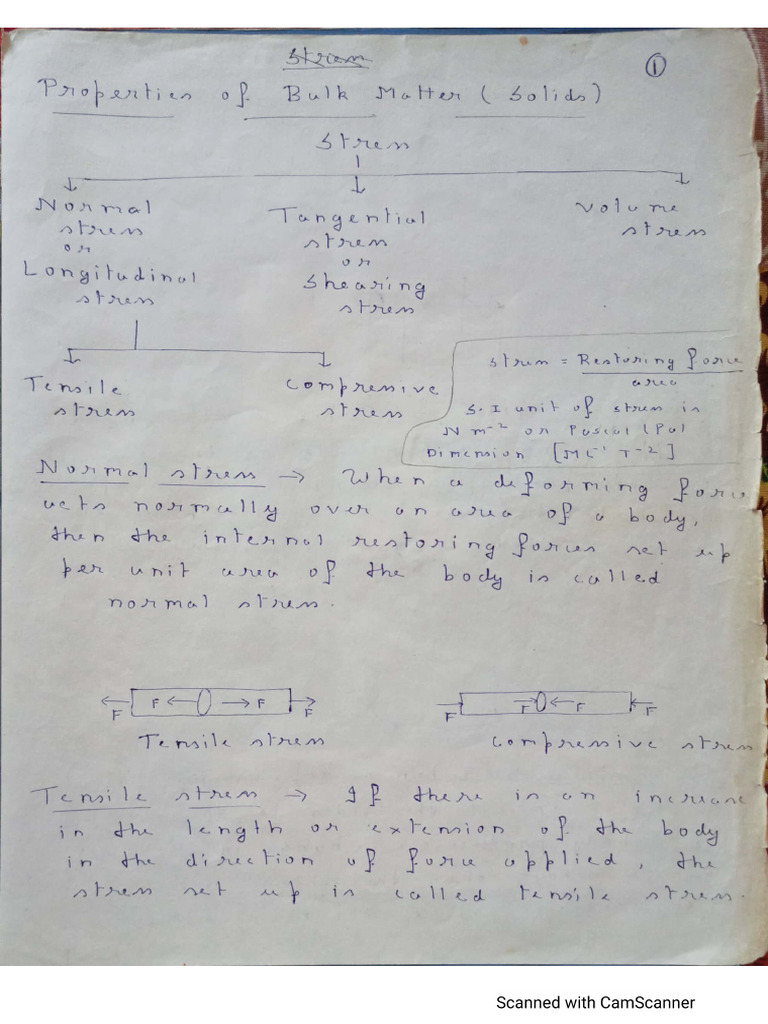 Stress
①
Properties of Bulk Matter (Solids)
Stress
Normal stress or Longitudinal stress
Tangential stress or Shearing stress
Volume stress
Tensile stress
Compressive stress
Stress = Restoring force / area
S.I unit of stress is
N m⁻² or Pascal (Pa)
Dimension [ML⁻¹T⁻²]
Normal stress → When a deforming force
acts normally over an area of a body,
then the internal restoring forces set up
per unit area of the body is called
normal stress.
F F F F
F F F F
Tensile stress
Compressive stress
Tensile stress → If there is an increase
in the length or extension of the body
in the direction of force applied, the
stress set up is called tensile stress.
Scanned with CamScanner